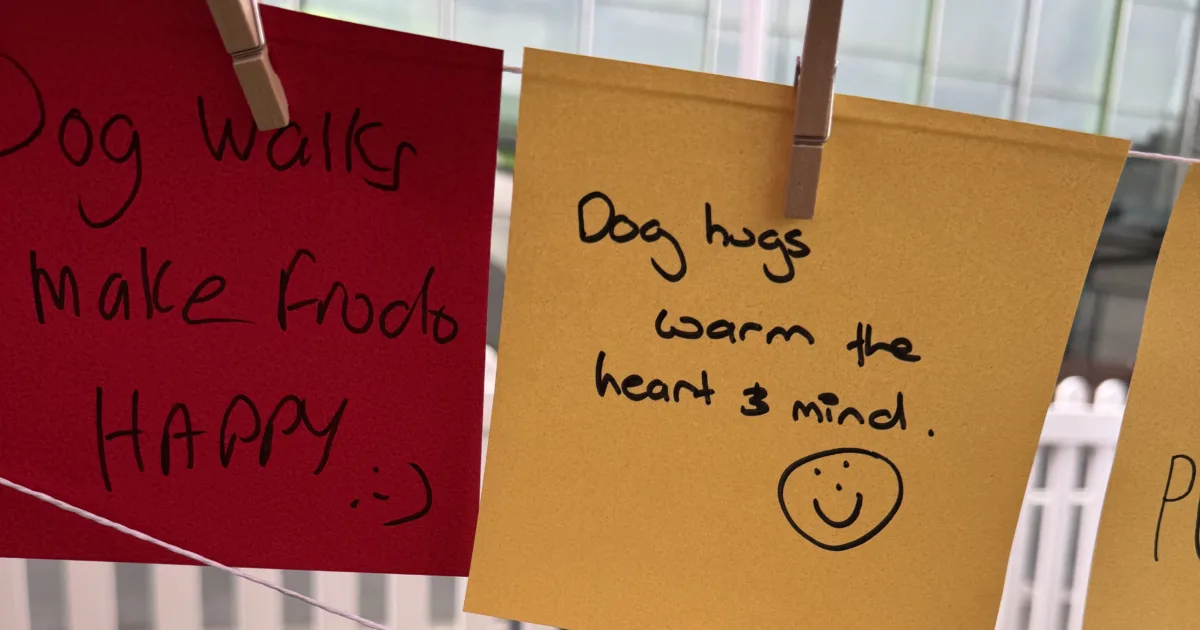 Dog walks
make Frodo
HAPPY :-)
Dog hugs
warm the
heart & mind.